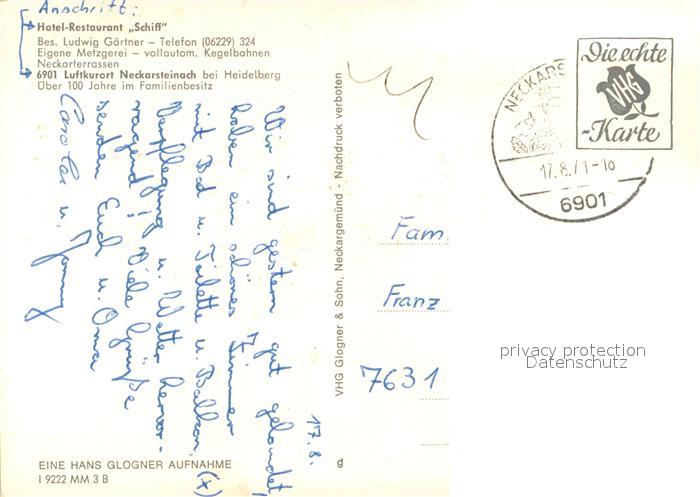 Anschrift:
Hotel-Restaurant „Schiff"
Bes. Ludwig Gärtner – Telefon (06229) 324
Eigene Metzgerei – vollautom. Kegelbahnen
Neckarterrassen
6901 Luftkurort Neckarsteinach bei Heidelberg
Über 100 Jahre im Familienbesitz
17.8.
Wir sind gestern gut gelandet,
haben ein schönes Zimmer
mit Bad u. Toilette u. Balkon. (x)
Verpflegung u. Wetter hervor-
ragend! Viele Grüße
senden Euch u. Oma
u.
VHG Glogner & Sohn, Neckargemünd - Nachdruck verboten
NECKARS
17.8.71-10
6901
Die echte
VHG
-Karte
Fam.
Franz
7631
privacy protection
Datenschutz
EINE HANS GLOGNER AUFNAHME
I 9222 MM 3 B
g